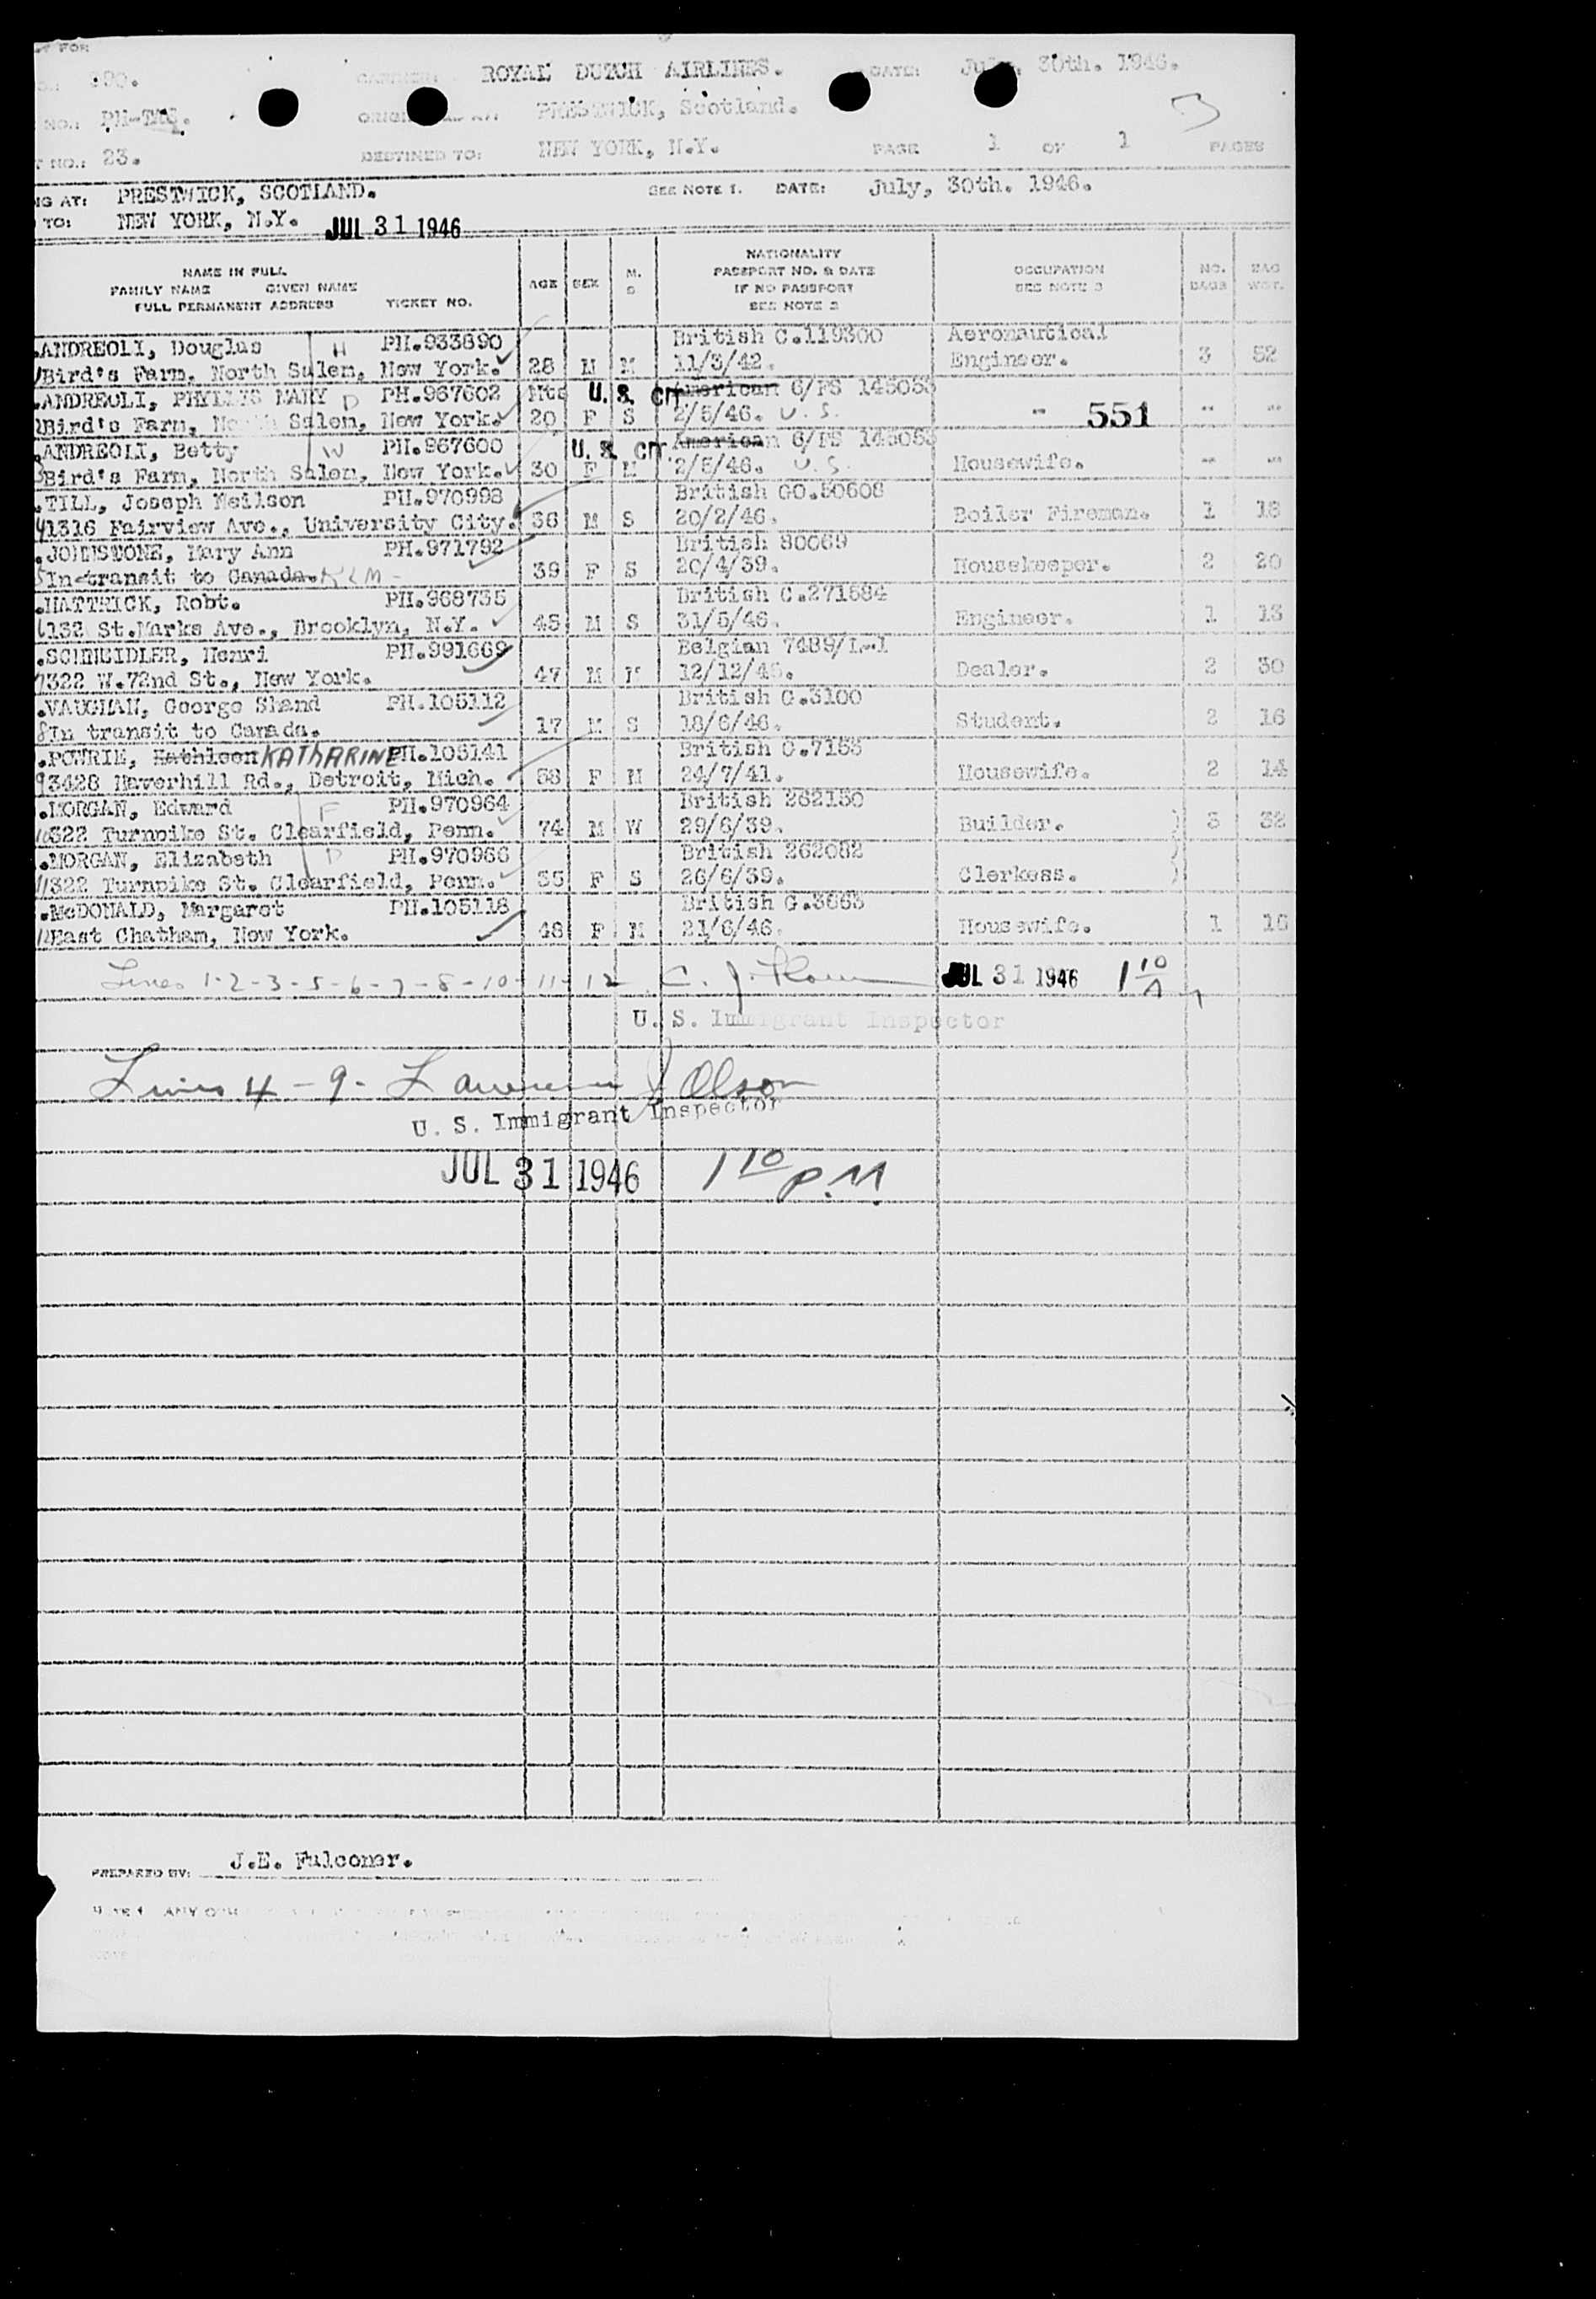 ROYAL DUTCH AIRLINES. DATE: July. 30th. 1946.
NO.: ORIGIN PRESTWICK, Scotland.
NO.: 23. DESTINED TO: NEW YORK, N.Y. PAGE 1 OF 1 PAGES
AT: PRESTWICK, SCOTLAND. SEE NOTE 1. DATE: July, 30th. 1946.
TO: NEW YORK, N.Y. JUL 31 1946
NAME IN FULL
FAMILY NAME GIVEN NAME
FULL PERMANENT ADDRESS TICKET NO. AGE SEX M. S NATIONALITY
PASSPORT NO. & DATE
IF NO PASSPORT
SEE NOTE 2 OCCUPATION
SEE NOTE 3 NO. BAGS BAG WGT.
ANDREOLI, Douglas H PH.933890 British C.119300 Aeronautical
1 Bird's Farm, North Salem, New York. 28 M M 11/3/42. Engineer. 3 52
ANDREOLI, PHYLLIS MARY D PH.967602 Mts U. S. CIT. American 6/PS 145053
2 Bird's Farm, North Salem, New York. 20 F S 2/5/46. U.S. - 551 -- --
ANDREOLI, Betty W PH.967600 U. S. CIT. American 6/PS 145053
3 Bird's Farm, North Salem, New York. 30 F M 2/5/46. U.S. Housewife. -- --
TILL, Joseph Neilson PH.970998 British GO.50608
4 1316 Fairview Ave., University City. 36 M S 20/2/46. Boiler Fireman. 1 18
JOHNSTONE, Mary Ann PH.971792 British 80069
5 In transit to Canada. KLM - 39 F S 20/4/39. Housekeeper. 2 20
HATTRICK, Robt. PH.968735 British C.271584
6 132 St.Marks Ave., Brooklyn, N.Y. 45 M S 31/5/46. Engineer. 1 13
SCHNEIDLER, Henri PH.991669 Belgian 7489/L-1
7 322 W.72nd St., New York. 47 M M 12/12/45. Dealer. 2 30
VAUGHAN, George Shand PH.105112 British C.3100
8 In transit to Canada. 17 M S 18/6/46. Student. 2 16
POWRIE, Kathleen KATHARINE PH.105141 British C.7153
9 3428 Haverhill Rd., Detroit, Mich. 58 F M 24/7/41. Housewife. 2 14
MORGAN, Edward F PH.970964 British 262150
10 322 Turnpike St. Clearfield, Penn. 74 M W 29/6/39. Builder. 3 32
MORGAN, Elizabeth D PH.970966 British 262082
11 322 Turnpike St. Clearfield, Penn. 35 F S 26/6/39. Clerkess.
McDONALD, Margaret PH.105118 British G.3663
12 East Chatham, New York. 48 F M 21/6/46. Housewife. 1 16
Lines 1-2-3-5-6-7-8-10-11-12 C. J. JUL 31 1946 1 10
U. S. Immigrant Inspector
Lines 4 - 9 - Lawrence J Olson
U. S. Immigrant Inspector
JUL 31 1946 1 10 P.M.
PREPARED BY: J.E. Fulconer.